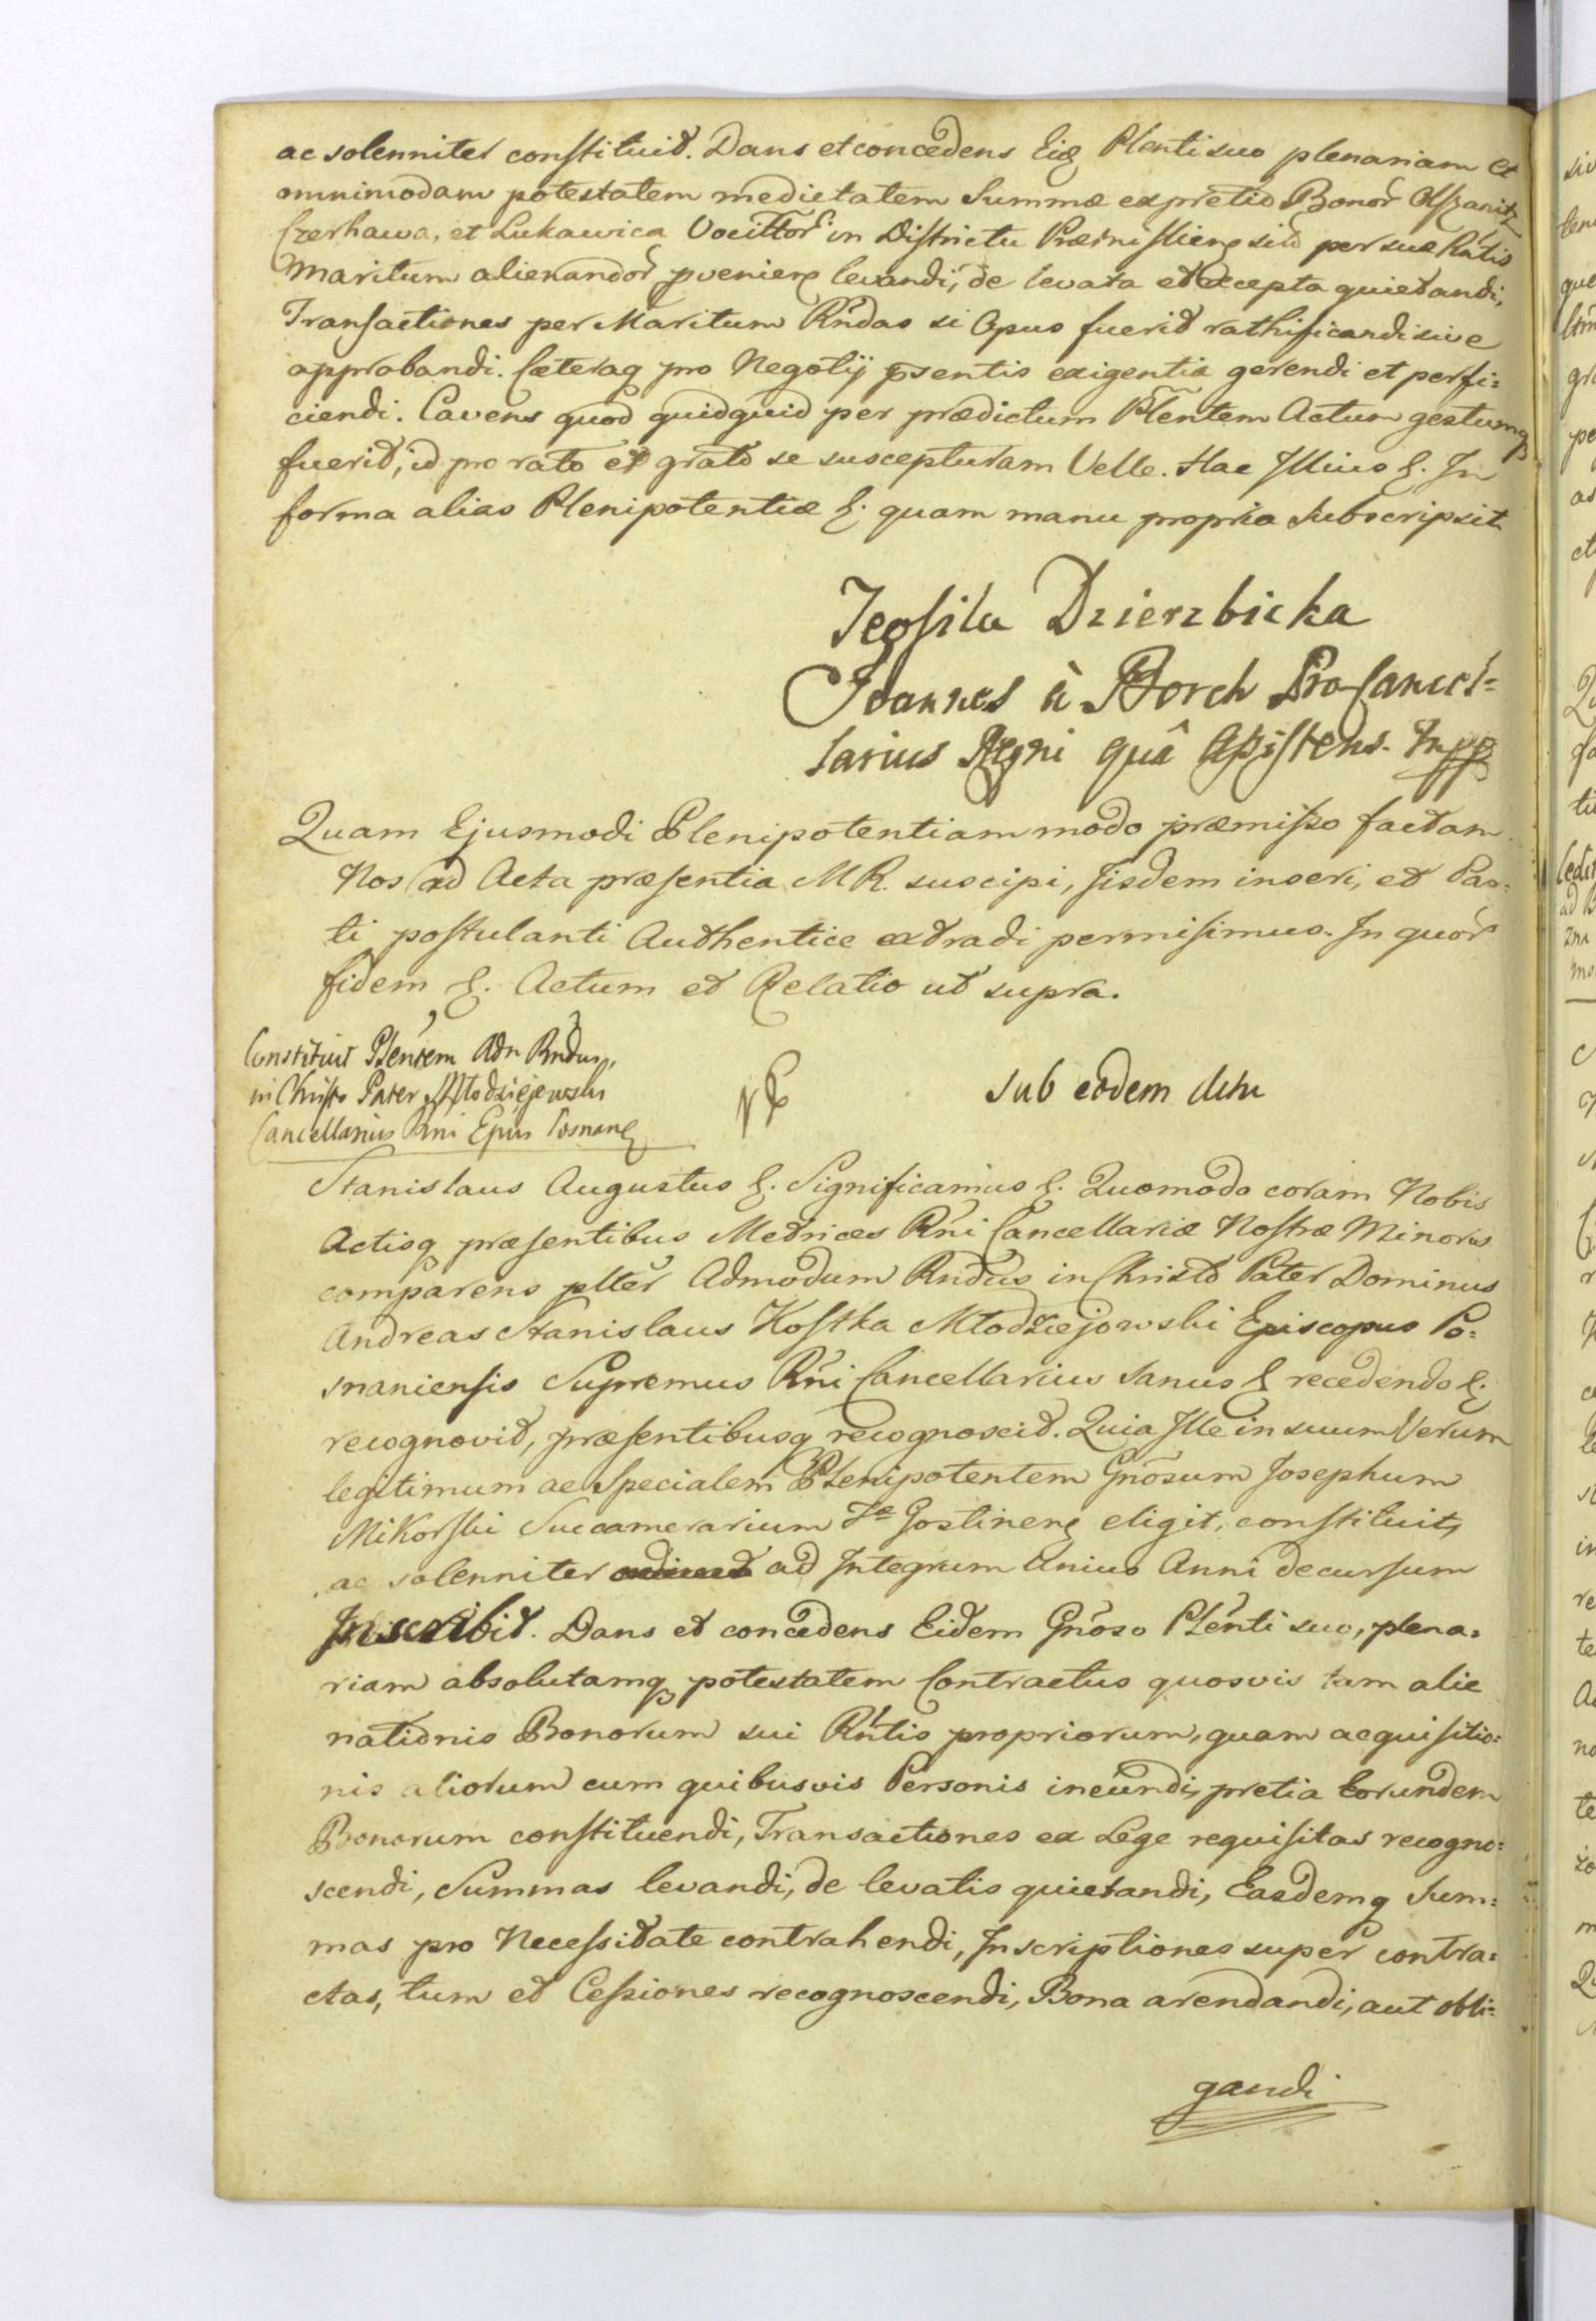 ac solenniter constituit. Dans et concedens Eidē Plenti suo plenariam et
omnimodam potestatem medietatem Summæ ex pretio Bonor̃ Olszanitz
Czerhawa, et Lukawica Vocittor̃ in Districtu Præmisliensi sitō per suæ Rñtis
Maritum alienandor̃ pveniens levandi, de levata et excepta quietandi,
Transactiones per Maritum Rñdas si Opus fuerit rathificandi sive
approbandi. Cæteraq pro Negotij psentis exigentia gerendi et perfi:
ciendi. Cavens quod quidquid per prædictum Plentem Actum gestumq
fuerit, id pro rato et grato se suscepturam Velle. Hac Illius &. In
forma alias Plenipotentiæ &. quam manu propria Subscripsit
Teofila Dzierzbicka
Joannes à Borch ProCancel=
larius Regni quâ Assistens. mpp
Quam Ejusmodi Plenipotentiam modo præmisso factam
Nos ad Acta præsentia MR. suscipi, Iisdem inseri, et Par:
ti postulanti Authentice extradi permisimus. In quor̃
fidem &. Actum et Relatio ut supra.
Constituit Plentem Adm Rndus,
in Christo Pater Młodziejewski
Cancellarius Rni Epus Posnanē
Sub eodem actu
Stanislaus Augustus &. Significamus &. Quomodo coram Nobis
Actisq præsentibus Metrices Rñi Cancellariæ Nostræ Minoris
comparens plter Admodum Rndus in Christo Pater Dominus
Andreas Stanislaus Kostka Młodziejowski Episcopus Po:
snaniensis Supremus Rñi Cancellarius Sanus & recedendo &.
recognovit, præsentibusq recognoscit. Quia Ille in suum Verum
legitimum ac Specialem Plenipotentem Gñosum Josephum
Mikorski Succamerarium Tæ Gostinenē eligit, constituit,
ac solenniter ad Integrum Unius Anni decursum
Inscribit. Dans et concedens Eidem Gñoso Plenti suo, plena:
riam absolutamq potestatem Contractus quosvis tam alie
nationis Bonorum sui Rñtis propriorum, quam acquisitio:
nis aliorum cum quibusvis Personis ineundi, pretia Eorundem
Bonorum constituendi, Transactiones ex Lege requisitas recogno:
scendi, Summas levandi, de levatis quietandi, Easdemq Sum:
mas pro Necessitate contrahendi, Inscriptiones super contra:
ctas, tum et Cessiones recognoscendi, Bona arendandi, aut obli:
gandi